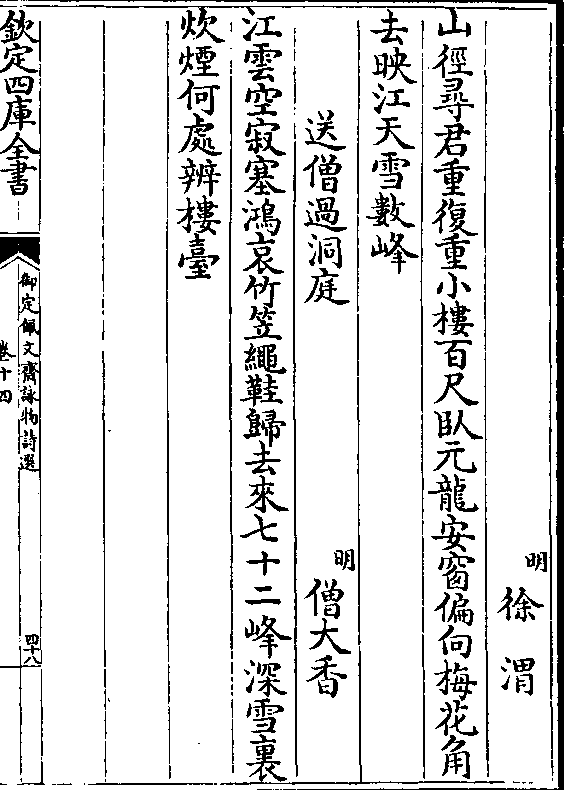 明 徐渭
山徑尋君重復重小樓百尺臥元龍安窗偏向梅花角
去映江天雪數峰
送僧過洞庭
明 僧大香
江雲空寂塞鴻哀竹笠繩鞋歸去來七十二峰深雪裏
炊煙何處辨樓臺
欽定四庫全書
御定佩文齋詠物詩選
卷十四
四十八